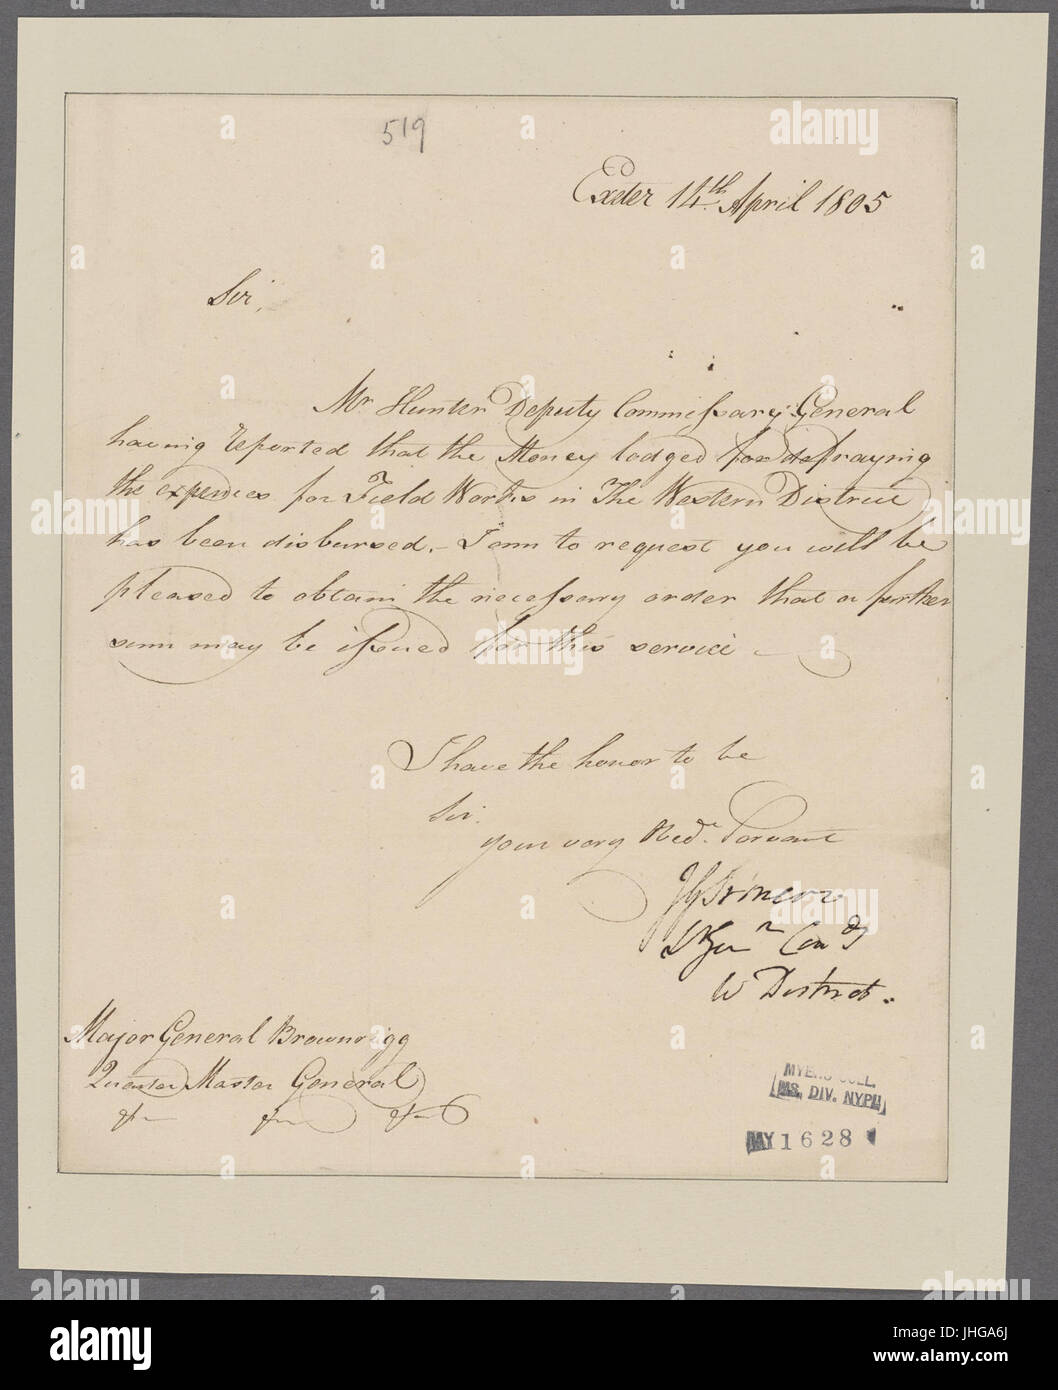 519
Exeter 14th. April 1805
Sir,
Mr. Hunter Deputy Commissary General
having reported that the Money lodged for defraying
the expences for Field Works in The Western District
has been disbursed. – I am to request you will be
pleased to obtain the necessary order that a further
sum may be issued for this service –
I have the honor to be
Sir.
your very Obedt. Servant
J G Simcoe
Lt Genl Comdg
W District.
Major General Brownrigg
Quarter Master General
&c &c &c
MYERS COLL.
MS. DIV. NYPL
MY 1628
alamy stock photo
JHGA6J
www.alamy.com